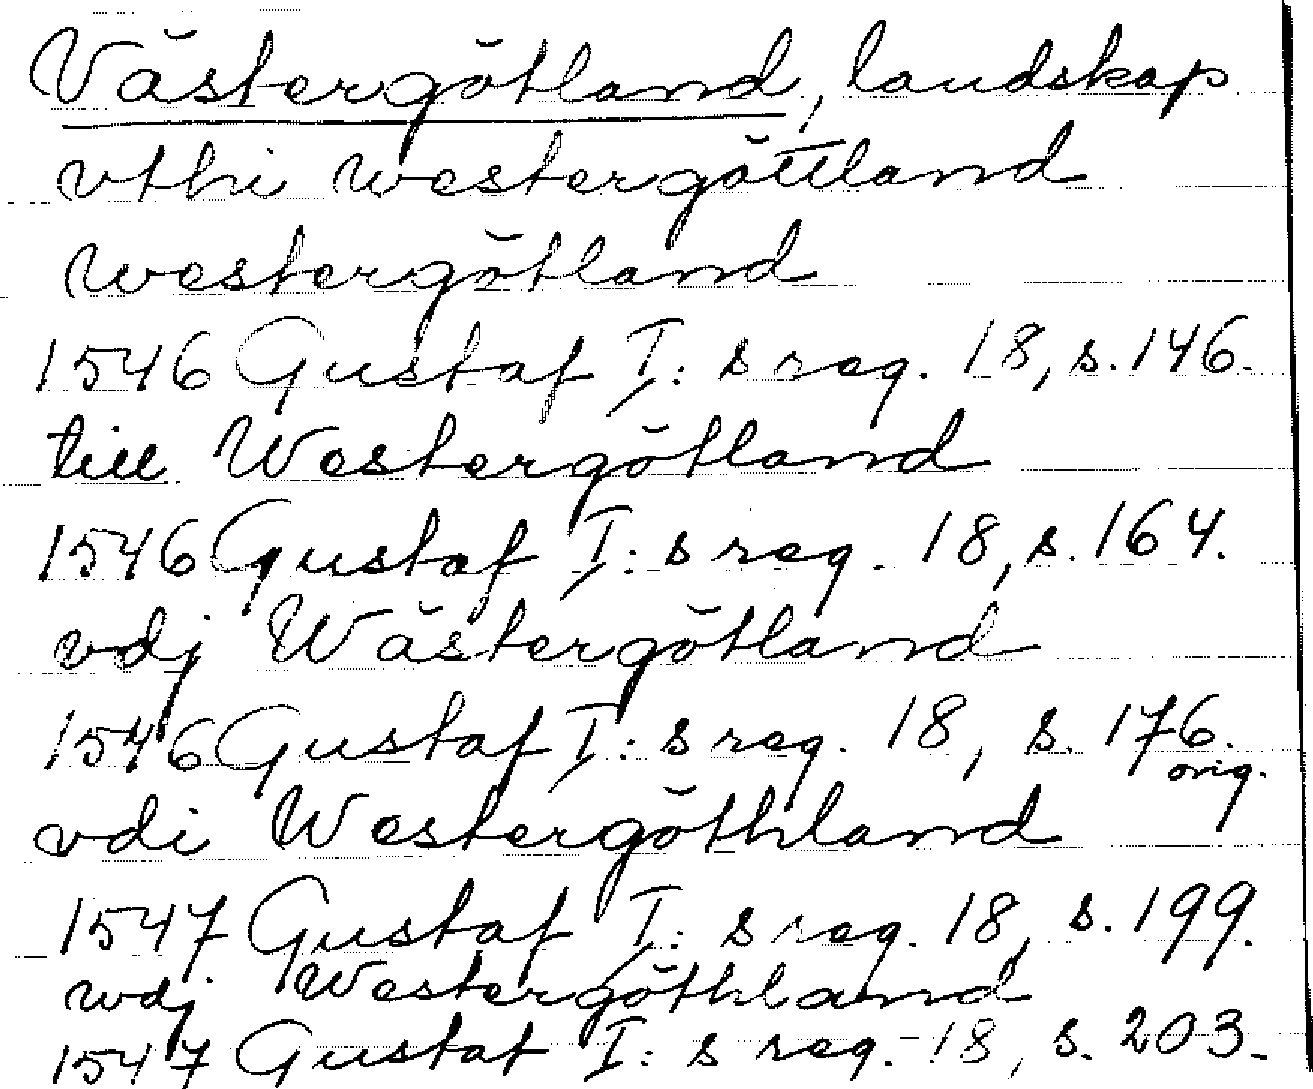 Västergötland, landskap
vthi westergöttland
westergötland
1546 Gustaf I: s reg. 18, s. 146.
till Westergötland
1546 Gustaf I: s reg. 18, s. 164.
vdj Wästergötland
1546 Gustaf I: s reg. 18, s. 176.
orig.
vdi Westergöthland
1547 Gustaf I: s reg. 18, s. 199.
wdj Westergöthland
1547 Gustaf I: s reg. 18, s. 203.